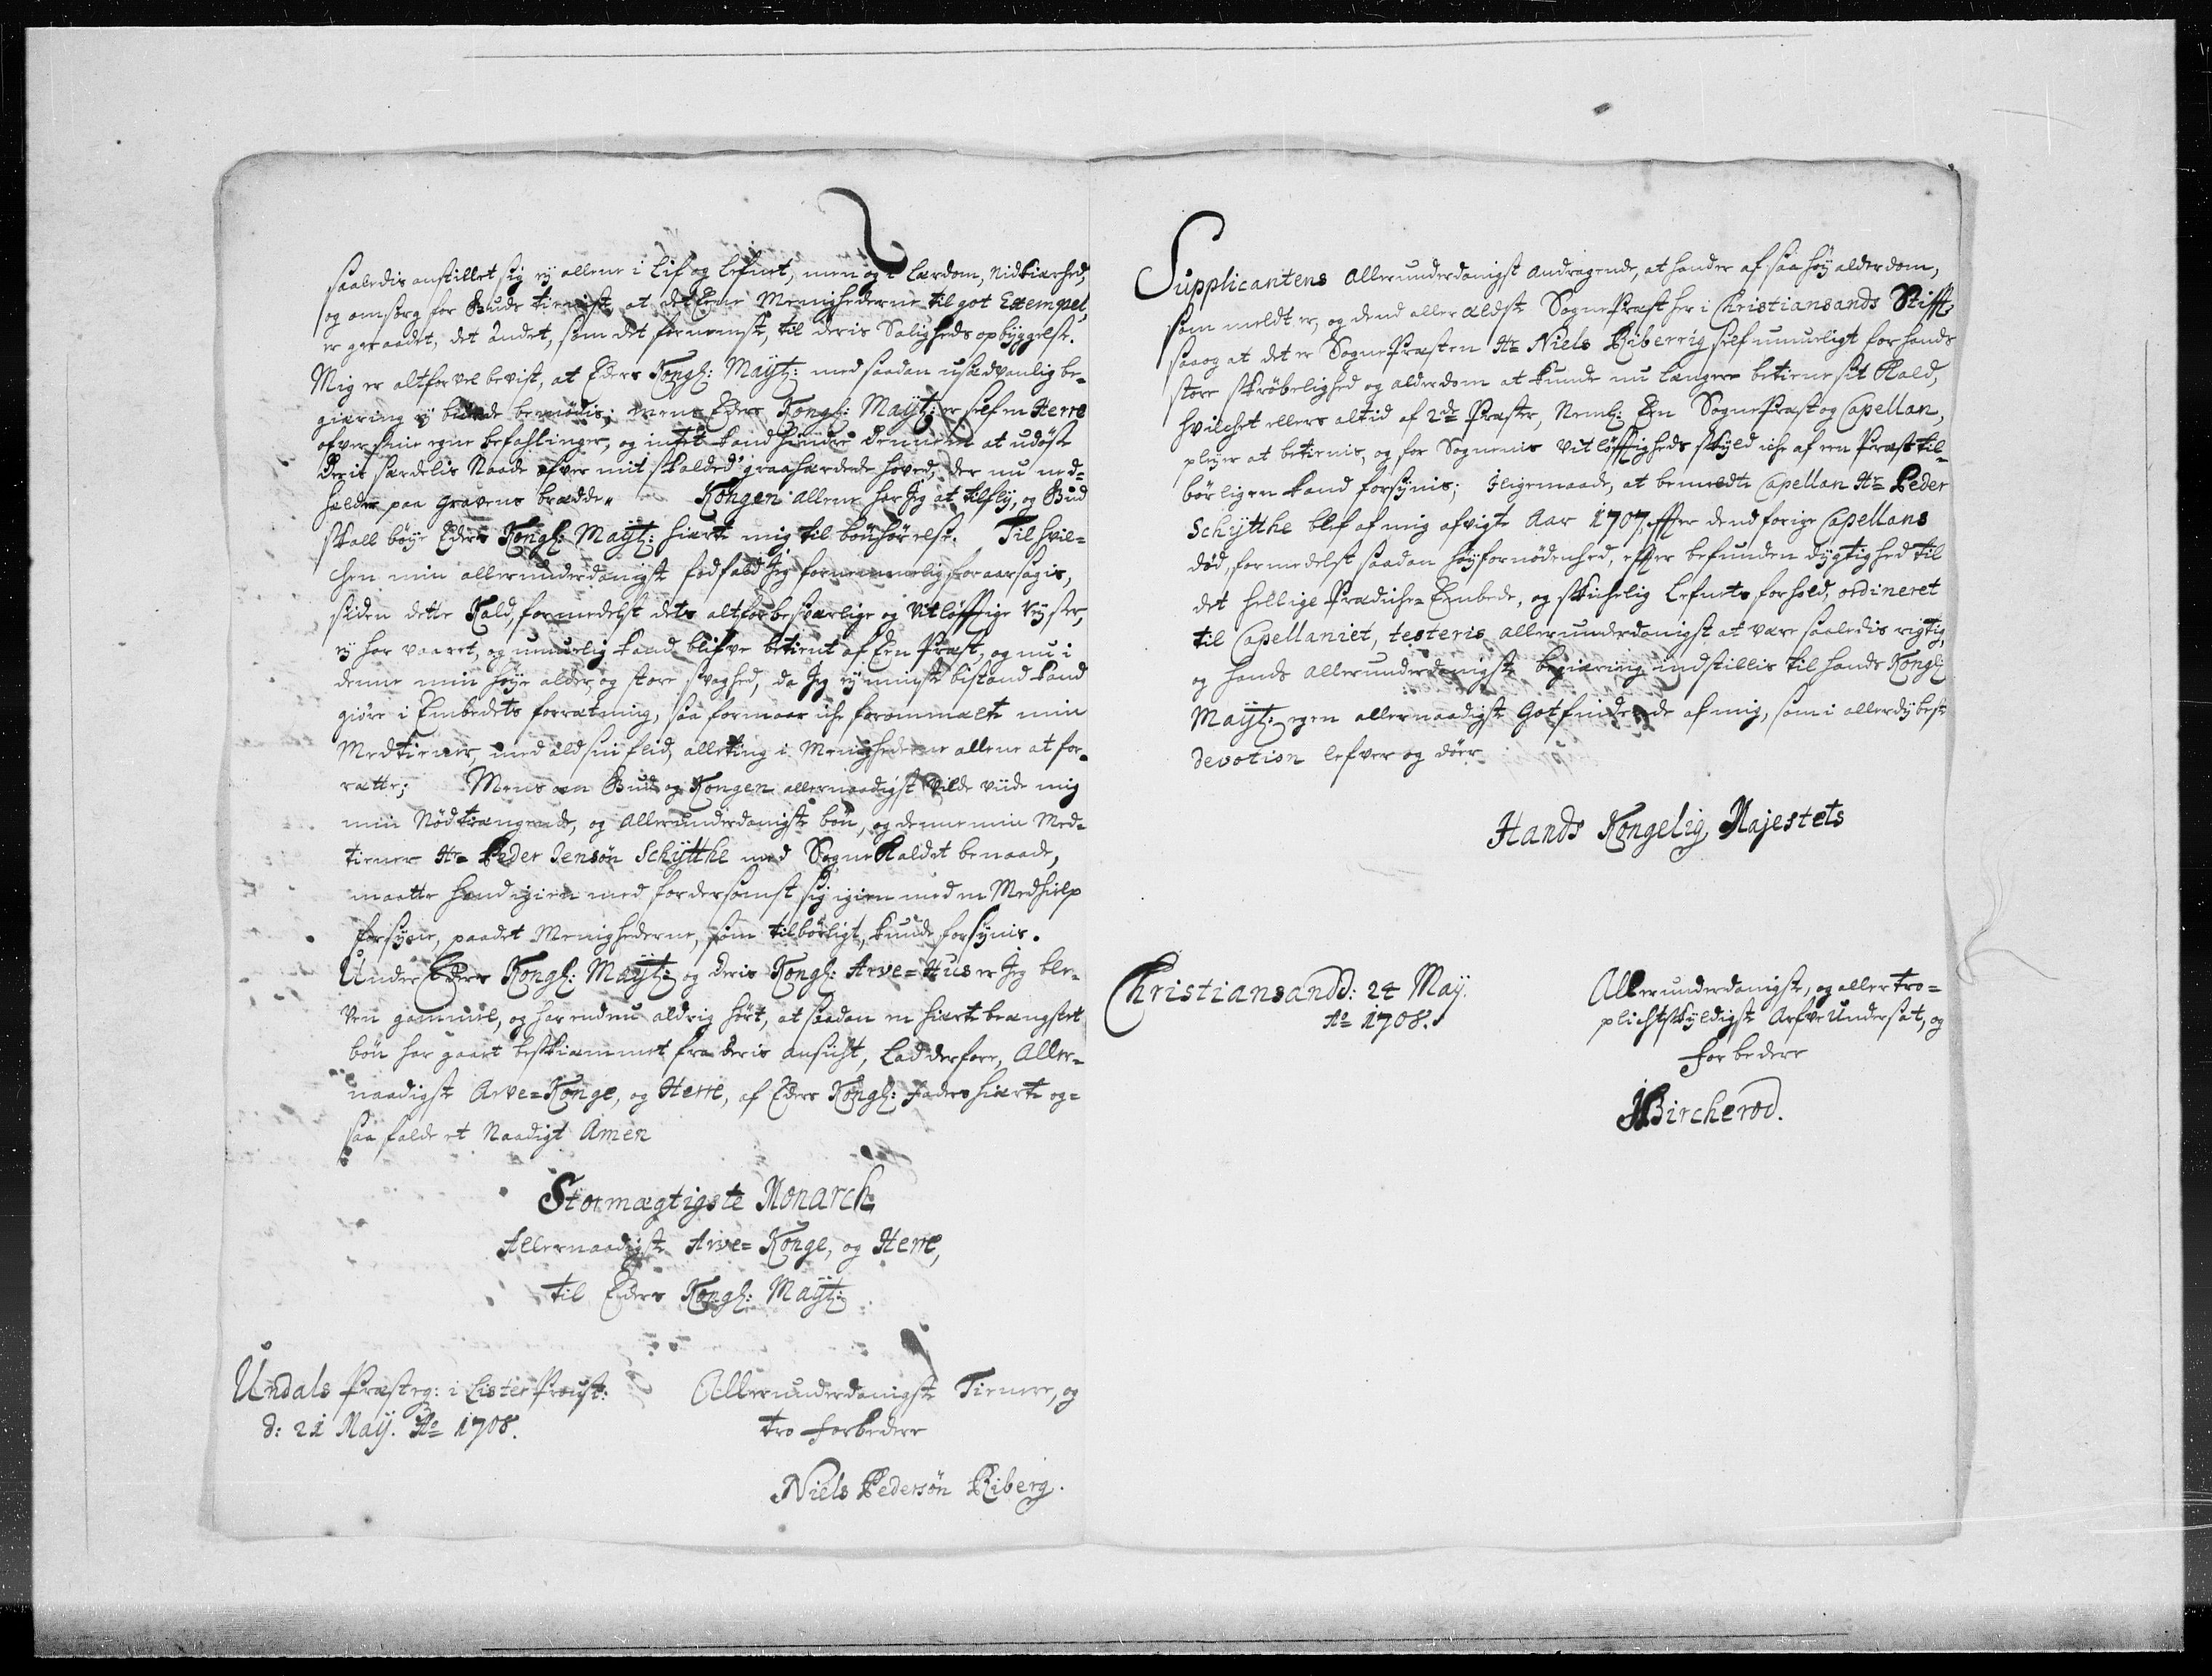 saaledis anstillet sig ej allene i Lif og Lefnet, men og i Lærdom, Nidkiærhed,
og omsorg for Guds tieniste, at det Eene Menighederne til got Exempel,
er geraadet, det andet, som det fornemste, til deris Saligheds opbyggelse.
Mig er altforvel bevist, at Eders Kongl: Mayt: med saadan usædvanlig be-
giæring ej burde bemødis; mens Eders Kongl: Mayt: er self en Herre
ofver sine egne befahlinger, og intet kand hindre dennem at udøse
Deris særdelis Naade ofver mit skalded graahærdede hoved, der nu ned-
helder paa gravens brædde. Kongen allene har Jeg at tilfly, og Gud
skall böye Eders Kongl: Mayt: hierte mig til bönhörelse. Til hvil-
chen min allerunderdanigst fodfald Jeg fornemmelig foraarsagis,
siden dette Kald, formedelst dets altfor besværlige og vitløfftige Reyser,
ej har vaaret, og umuelig kand blifve betient af Een Præst, og nu i
denne min høye alder, og store svaghed, da Jeg ej minste bistand kand
giöre i Embedets forretning, saa formaar iche forommelte min
Medtiener, med ald sin flid, alleting i Menighederne allene at for-
rætte; Mens om Gud og Kongen allernaadigst vilde vüde mig
min Nødtrængende, og Allerunderdanigste bön, og denne min Med-
tiener Hr Peder Jensøn Schÿtthe med Sogne Kaldet benaade,
maatte hand igien med fordersamst sig igien med en Medhielp
forsyne, paadet Menighederne, som tilbörligt, kunde forsynis.
Under Eders Kongl: Maÿt: og Deris Kongl: Arve=Hus er Jeg ble-
ven gammel, og har endnu aldrig hört, at saadan en hierte beængstet
bön har gaaet beskiæmmet fra deris Ansicht, Lad derfore, Aller-
naadigst Arve=Konge, og Herre, af Eders Kongl: faders hierte og-
saa falde et Naadigt Amen
Stormægtigste Monarch
Allernaadigste Arve=Konge, og Herre,
til Eders Kongl: Maÿt:
Undals Præsteg: i Lister Proust:
d: 21 Maÿ. Ao 1708.
Allerunderdanigste Tienere, og
tro forbedere
Niels Pedersön Riberg.
Supplicantens allerunderdanigst Andragende, at hand er af saa høy alderdom,
som meldt er, og dend aller ældste SognePræst her i Christiansands Stifft,
saa og at det er SognePræsten Hr Niels Riberrig self umueligt for hands
store skröbelighed og alderdom at kunde nu længere betiene sit Kald,
hvilchet ellers altid af 2de Præster, Neml: Een SognePræst og Capellan,
pleyer at betienis, og for Sognenis vitlöfftigheds skyld iche af een Præst til-
börligen kand forsynis; Iligemaade, at bemeldte Capellan Hr Peder
Schÿtthe blef af mig afvigte Aar 1707, effter dend forige Capellans
död, formedelst saadan höyfornödenhed, effter befunden dygtighed til
det hellige Prædiche=Embede, og skichelig Lefnets forhold, ordineret
til Capellaniet, testeris allerunderdanigst at være saaledis rigtig,
og hands allerunderdanigste begiæring indstillis til hands Kongl:
Maÿt: egen allernaadigste Gotfindende af mig, som i allerdybeste
devotion lefver og döer
Hands Kongelig Majestets
Christiansand d: 24 Maÿ.
Ao 1708.
Allerunderdanigste, og aller tro=
plichtskyldigste Arfve Undersat, og
forbedere
JBircherod.